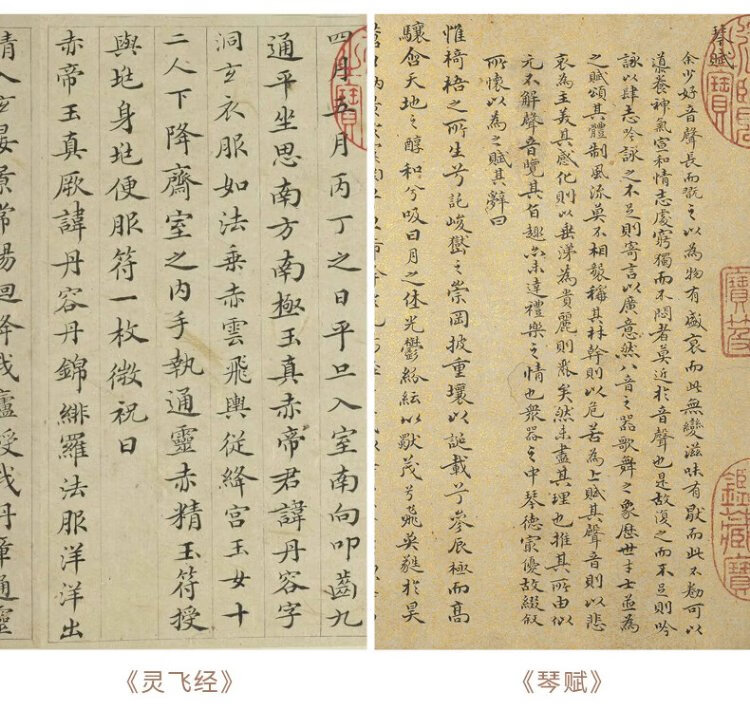 四月五月丙丁之日平旦入室南向叩齒九
通平坐思南方南極玉真赤帝君諱丹容字
洞玄衣服如法乘赤雲飛輿從絳宮玉女十
二人下降齋室之内手執通靈赤精玉符授
與兆身兆便服符一枚微祝曰
赤帝玉真厥諱丹容丹錦緋羅法服洋洋出
清入玄晏景常陽迴降我廬授我丹章通靈
《灵飞经》
琴賦
余少好音聲長而翫之以為物有盛衰而此無變滋味有猒而此不勌可以
導養神氣宣和情志處窮獨而不悶者莫近於音聲也是故復之而不足則吟
詠以肆志吟詠之不足則寄言以廣意然八音之器歌舞之象歷世才士並為
之賦頌其體制風流莫不相襲稱其材幹則以危苦為上賦其聲音則以悲
哀為主美其感化則以垂涕為貴麗則麗矣然未盡其理也推其所由似
元不解聲音覽其旨趣亦未達禮樂之情也衆器之中琴德最優故綴叙
所懷以為之賦其辭曰
惟椅梧之所生兮託峻嶽之崇岡披重壤以誕載兮參辰極而高
驤含天地之醇和兮吸日月之休光鬱紛紜以獨茂兮飛英蕤於昊
《琴赋》